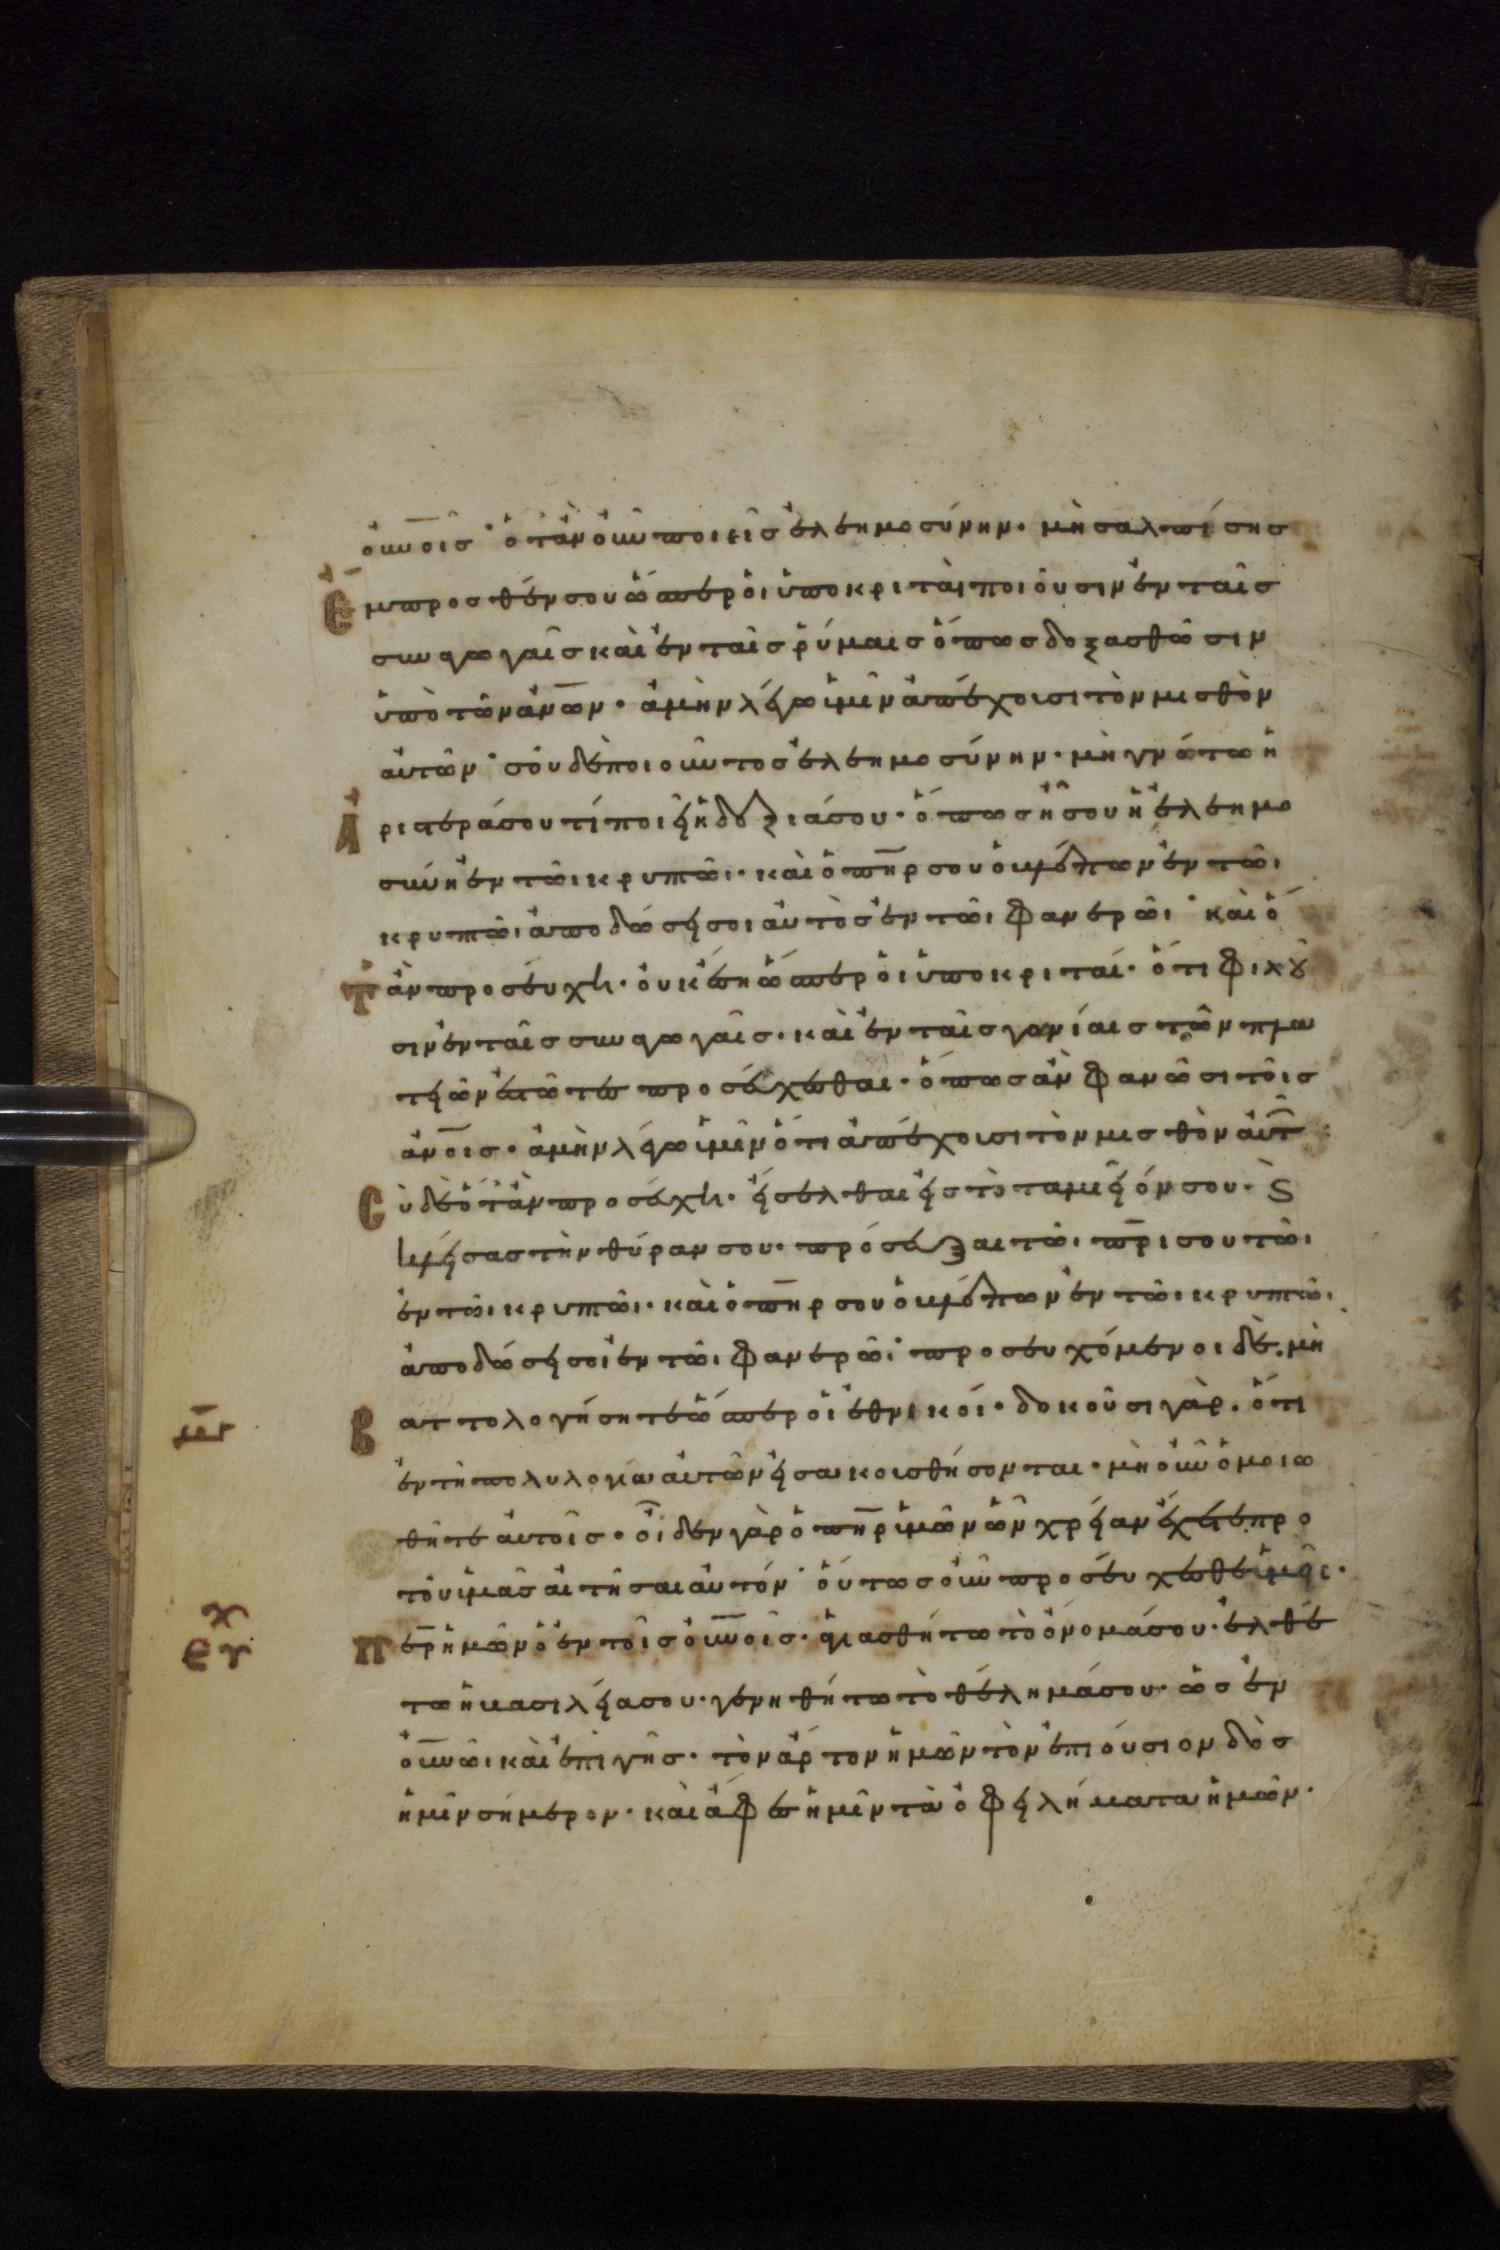 οὐνοῖσ· ὅτὰν οὖν ποιεῖσ ἐλεημοσύνην· μὴ σαλπίσησ
Ἐμπροσθέν σου ὥσπερ ὁι ὑποκριταὶ ποιοῦσιν ἐν ταῖσ
συναγωγαῖσ καὶ ἐν ταῖσ ῥύμαισ ὅπωσ δοξασθῶσιν
ὑπὸ τῶν ἀνων· ἀμὴν λέγω ὑμῖν ἀπέχουσι τὸν μισθὸν
αὐτῶν· σοῦ δὲ ποιοῦντοσ ἐλεημοσύνην· μὴ γνώτω ἡ
Ἀριστερά σου τί ποιεῖ ἡ δεξιά σου· ὅπωσ ἦ σου ἡ ἐλεημο
σύνη ἐν τῶι κρυπτῶι· καὶ ὁ πηρ σου ὁ βλέπων ἐν τῶι
κρυπτῶι ἀποδώσει σοι αὐτὸσ ἐν τῶι φανερῶι· καὶ ὅ
Τὰν προσέυχη· οὐκ ἔση ὥσπερ ὁι ὑποκριταί· ὅτι φιλοῦ
σιν ἐν ταῖσ συναγωγαῖσ· καὶ ἐν ταῖσ γωνίαισ τῶν πλα
τειῶν ἑστῶτεσ προσέυχεσθαι· ὅπωσ ἀν φανῶσι τοῖσ
ἀνοισ· ἀμὴν λέγω ὑμῖν ὅτι ἀπέχουσι τὸν μισθὸν αὐτ
Σὺ δὲ ὅτὰν προσέυχη· εἴσελθαι εἰσ τὸ ταμιεῖόν σου· ϛ
κλείσασ τὴν θύραν σου· πρόσευξαι τῶι πρι σου τῶι
ἐν τῶι κρυπτῶι· καὶ ὁ πηρ σου ὁ βλέπων ἐν τῶι κρυπτῶι·
ἀποδώσει σοὶ ἐν τῶι φανερῶι· προσευχόμενοι δὲ. μὴ
Βαττολογήσητε ὥσπερ ὁι ἐθνικοί· δοκοῦσι γὰρ. ὅτι
ἐν τῆ πολυλογία αὐτῶν εἰσακουσθήσονται· μὴ οὖν ὁμοιω
θῆτε αὐτοῖσ· οἶδεν γὰρ ὁ πηρ ὑμῶν ὧν χρείαν ἔχετε πρὸ
τοῦ ὑμᾶσ αἰτῆσαι αὐτόν· ὅυτωσ οὖν προσέυχεσθε ὑμεῖσ·
Περ ἡμῶν ὁ ἐν τοῖσ οὐνοῖσ· ἁγιασθήτω τὸ ὄνομά σου· ἐλθέ
τω ἡ βασιλεία σου· γενηθήτω τὸ θέλημά σου· ὡσ ἐν
οὐνῶι καὶ ἐπὶ γῆσ· τὸν ἄρτον ἡμῶν τὸν ἐπιούσιον δὸσ
ἡμῖν σήμερον· καὶ ἄφεσ ἡμῖν τὰ ὀφειλήματα ἡμῶν·